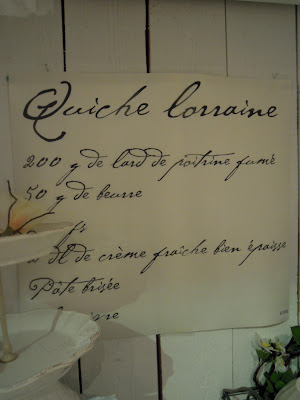 Quiche lorraine
200 g de lard de poitrine fumé
50 g de beurre
dl de crème fraîche bien épaisse
Pâte brisée